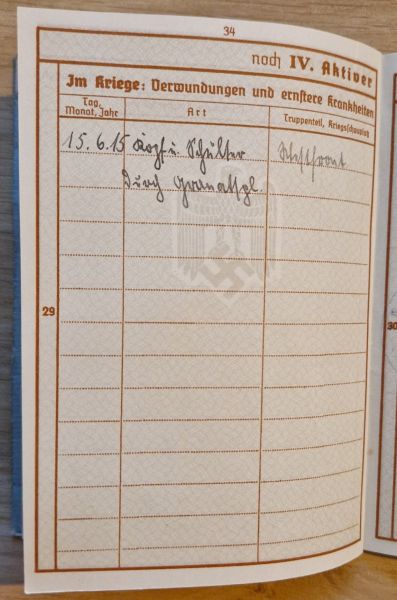 34
noch IV. Aktiver
Im Kriege: Verwundungen und ernstere Krankheiten
Tag, Monat, Jahr
Art
Truppenteil, Kriegsschauplatz
15.6.15 Kopf u. Schulter Westfront
durch Granatspl.
29
30